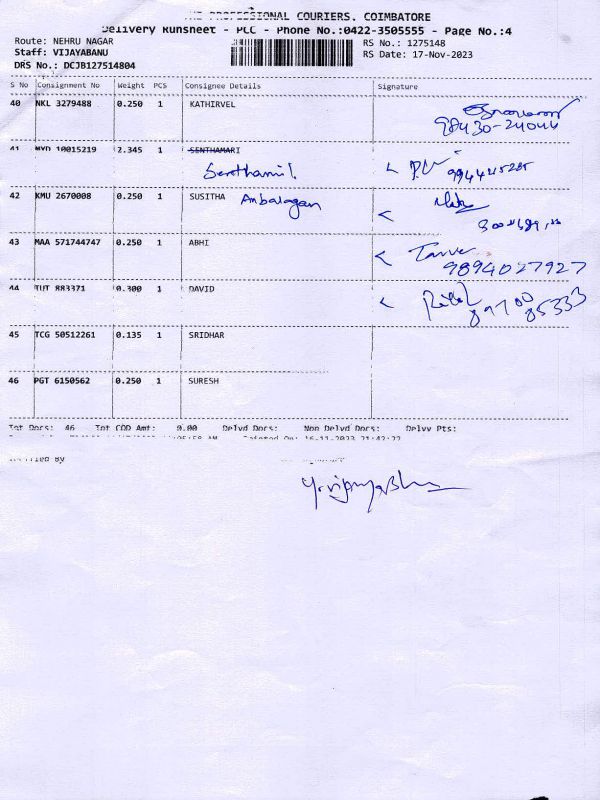 THE PROFESSIONAL COURIERS. COIMBATORE
Delivery Runsheet - PLC - Phone No.:0422-3505555 - Page No.:4
Route: NEHRU NAGAR
RS No.: 1275148
Staff: VIJAYABANU
RS Date: 17-Nov-2023
DRS No.: DCJB127514804
S No Consignment No Weight PCS Consignee Details Signature
40 NKL 3279488 0.250 1 KATHIRVEL
98430-24044
41 MYD 10015219 2.345 1 SENTHAMARI
Senthamil
42 KMU 2670008 0.250 1 SUSITHA Ambalagan
43 MAA 571744747 0.250 1 ABHI
9894027927
44 TUT 883371 0.300 1 DAVID
89700
85333
45 TCG 50512261 0.135 1 SRIDHAR
46 PGT 6150562 0.250 1 SURESH
Tot Docs: 46 Tot COD Amt: 0.00 Delvd Docs: Non Delvd Docs: Delvy Pts:
16-11-2023 21:42:22
Verified By